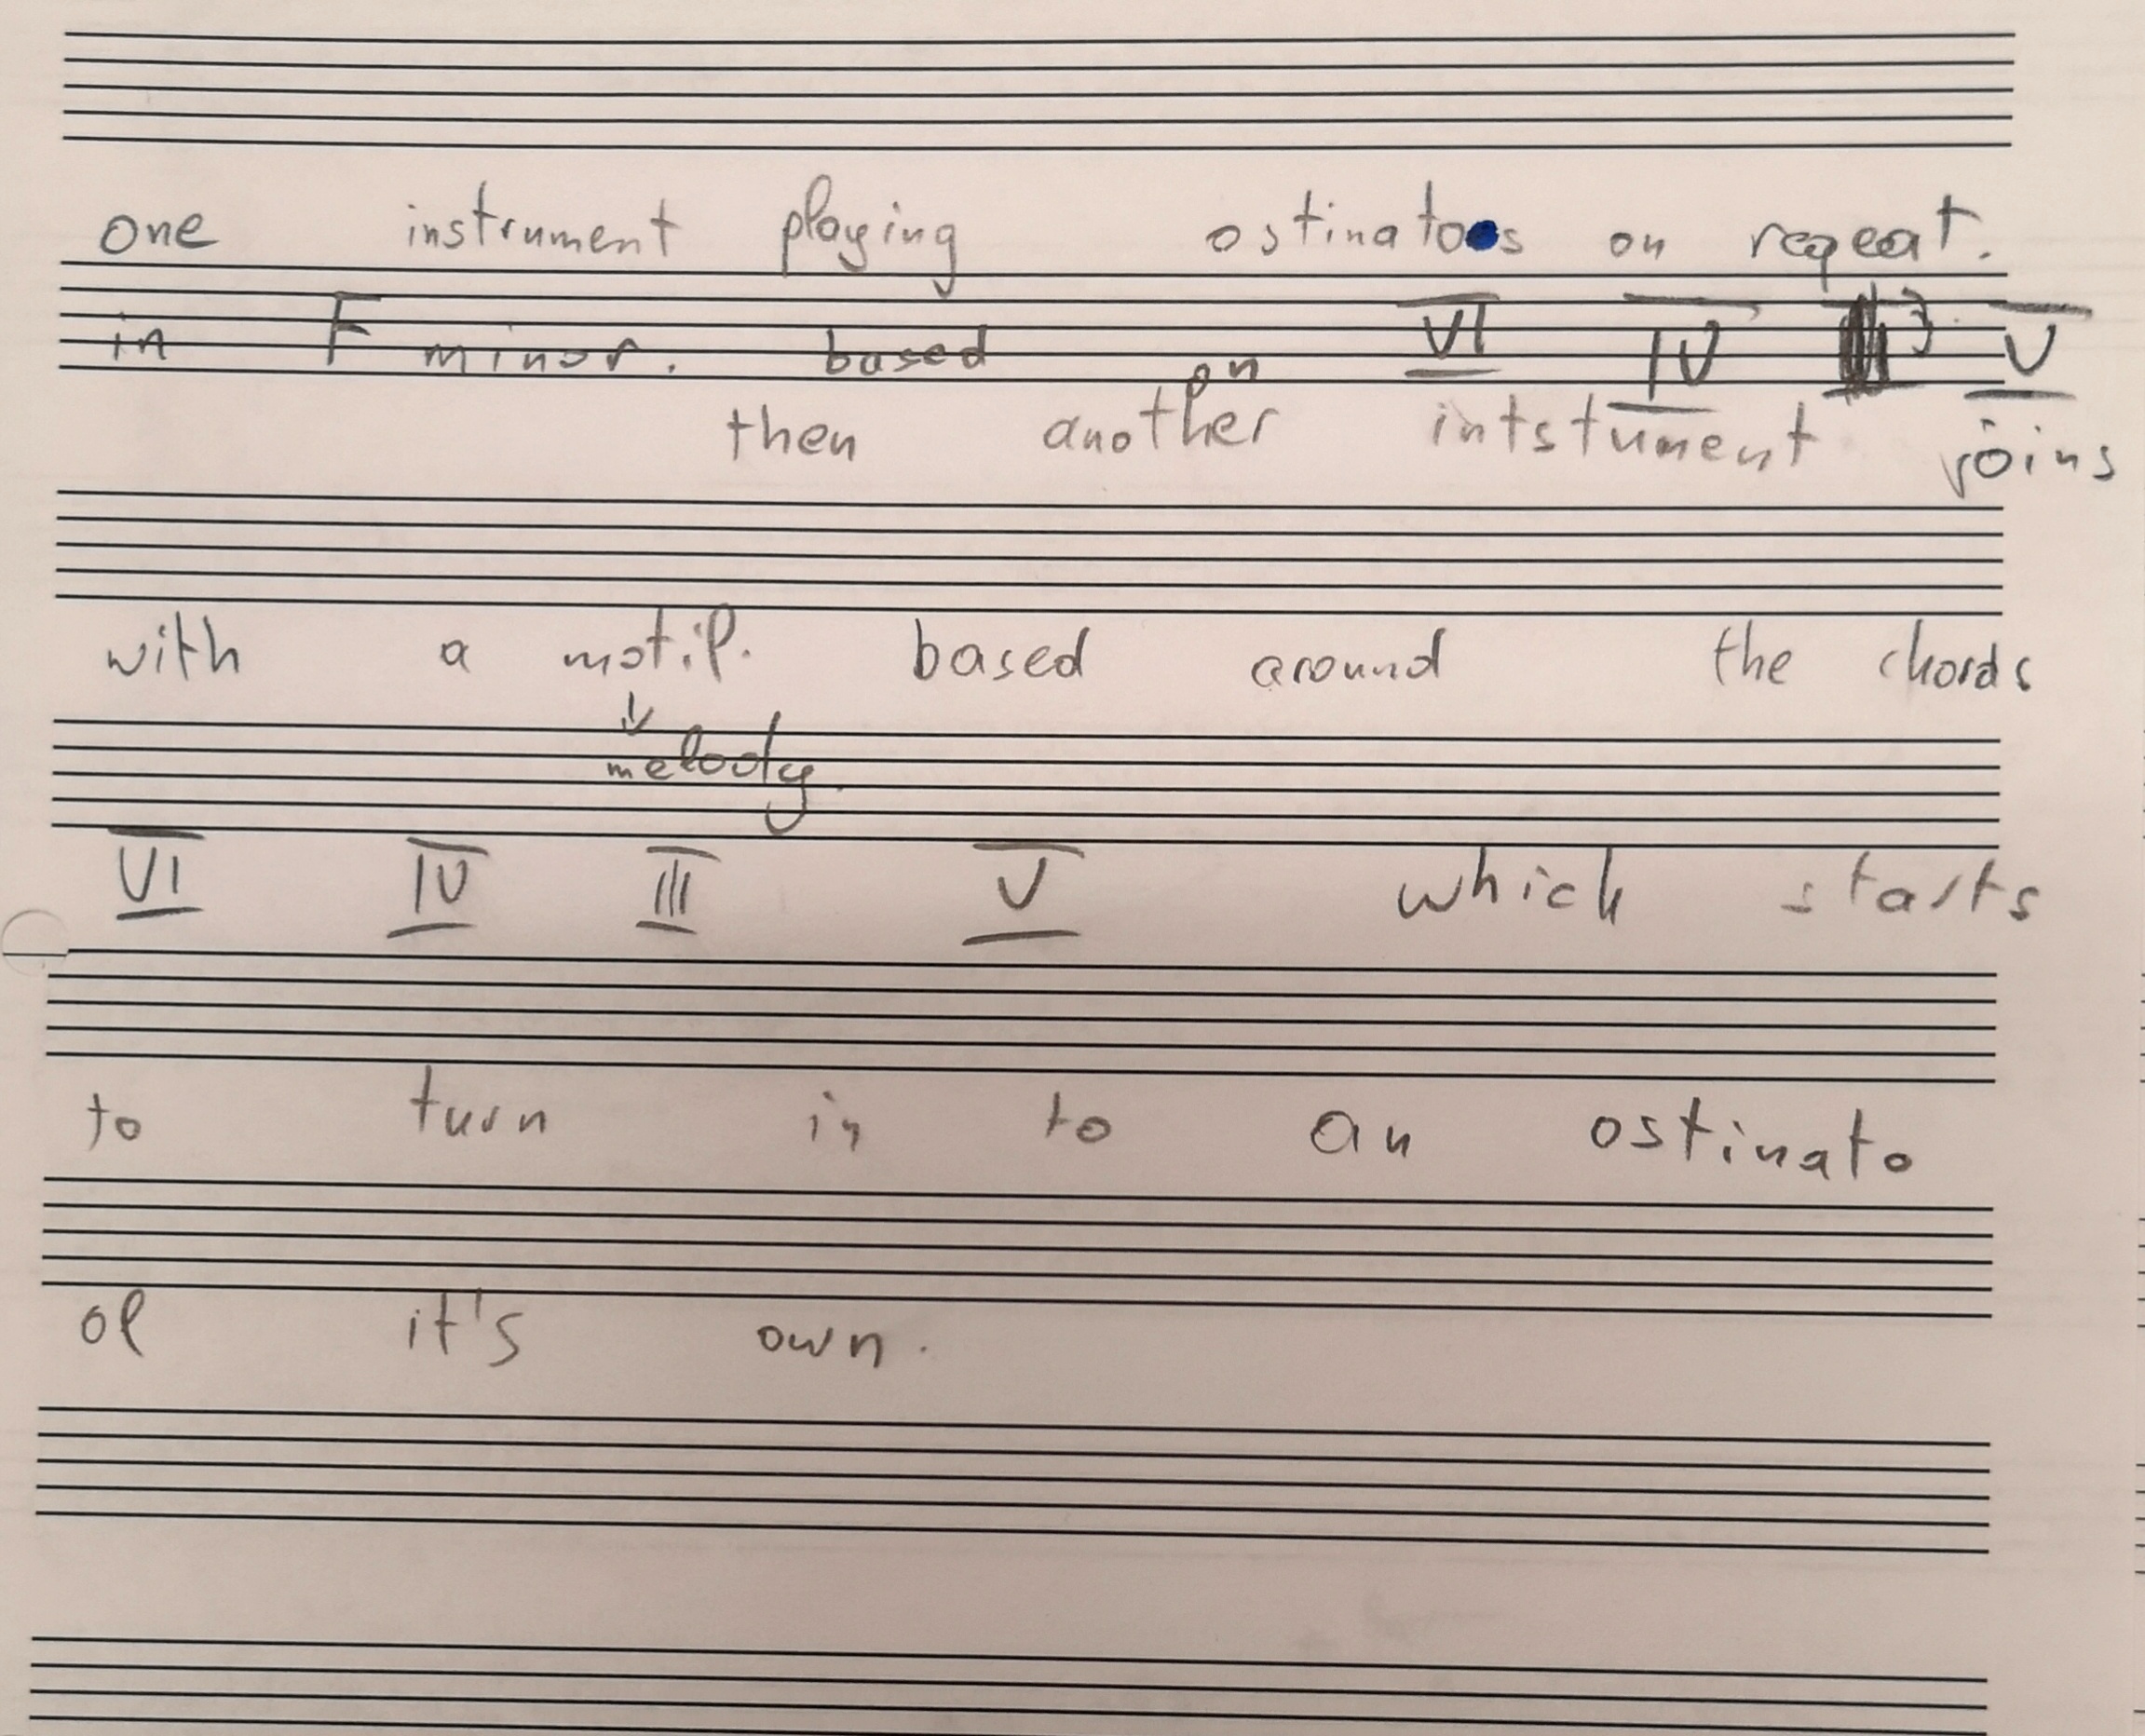 one instrument playing ostinatos on repeat.
in F minor. based on VI IV 3 V
then another intstument joins
with a motif. based around the chords
melody.
VI IV III V which starts
to turn in to an ostinato
of it's own.